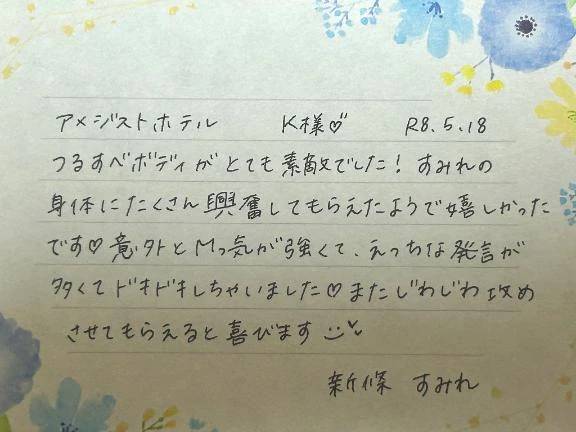 アメジストホテル K様♡ R8.5.18
つるすべボディがとても素敵でした！すみれの
身体にたくさん興奮してもらえたようで嬉しかった
です♡意外とMっ気が強くて、えっちな発言が
多くてドキドキしちゃいました♡またじわじわ攻め
させてもらえると喜びます
新條 すみれ